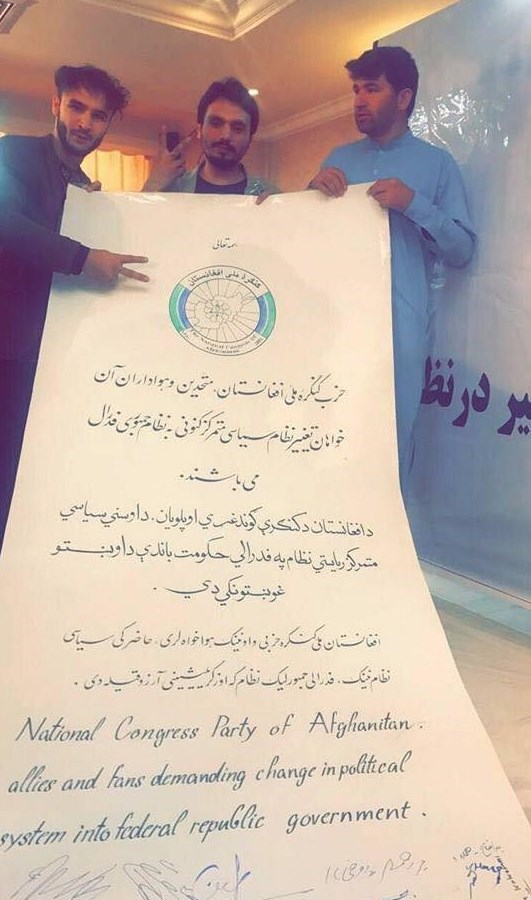 بسمه تعالی
کنگرهٔ ملی افغانستان
The National Congress of
Afghanistan
حزب کنگره ملی افغانستان، متحدین و هواداران آن
خواهان تغییر نظام سیاسی متمرکز کنونی به نظام جمهوری فدرال
می باشند.
د افغانستان د کنګرې ګوند غړي او پلویان، د اوسني سیاسي
متمرکز ریاستي نظام په فدرالي حکومت باندې د اوښتو
غوښتونکي دي.
افغانستان ملی کنگره حزبی و اونینک هواخواه لری، حاضرکی سیاسی
نظام نینک، فدرالی جمهورلیک نظام که اوزگریشینی آرزو قیله دی.
National Congress Party of Afghanitan.
allies and fans demanding change in political
system into federal republic government.
یر در نظ